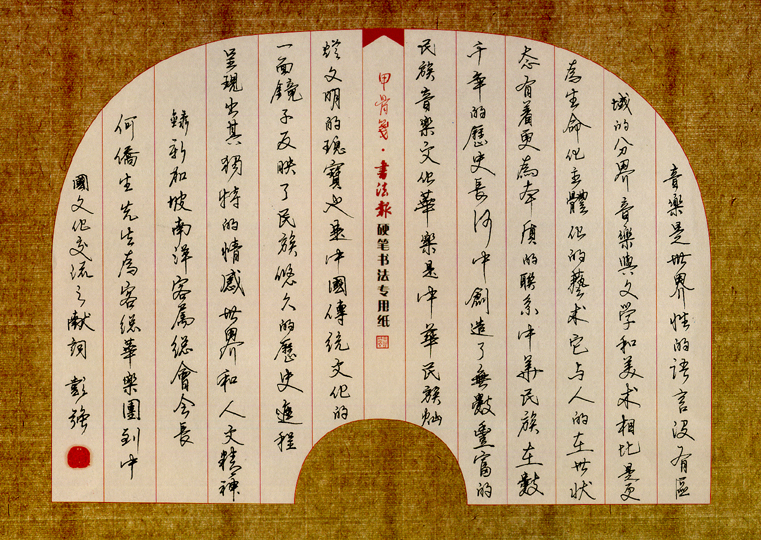 音樂是世界性的语言没有區
域的分界音樂與文学和美术相比是更
為生命化主體化的藝术它与人的在世状
态有着更為本质的联系中华民族在數
千年的歷史長河中創造了無數豐富的
民族音樂文化華樂是中華民族灿
甲骨笺·書法報硬笔书法专用纸
燦文明的瑰寶也是中國傳統文化的
一面鏡子反映了民族悠久的歷史進程
呈現出其獨特的情感世界和人文精神
錄新加坡南洋客属總會会長
何僑生先生為客總華樂團到中
國文化交流之献詞 彭强